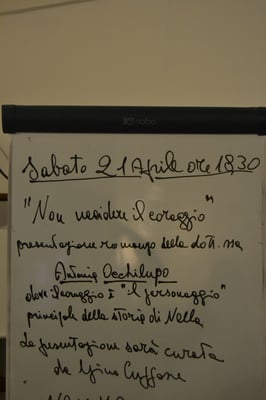 nobo
Sabato 21 Aprile ore 18.30
"Non uccidere il coraggio"
presentazione romanzo della dott.ssa
Antonia Occhilupo
dove il coraggio è "il personaggio"
principale della storia di Nella
La presentazione sarà curata
da Gino